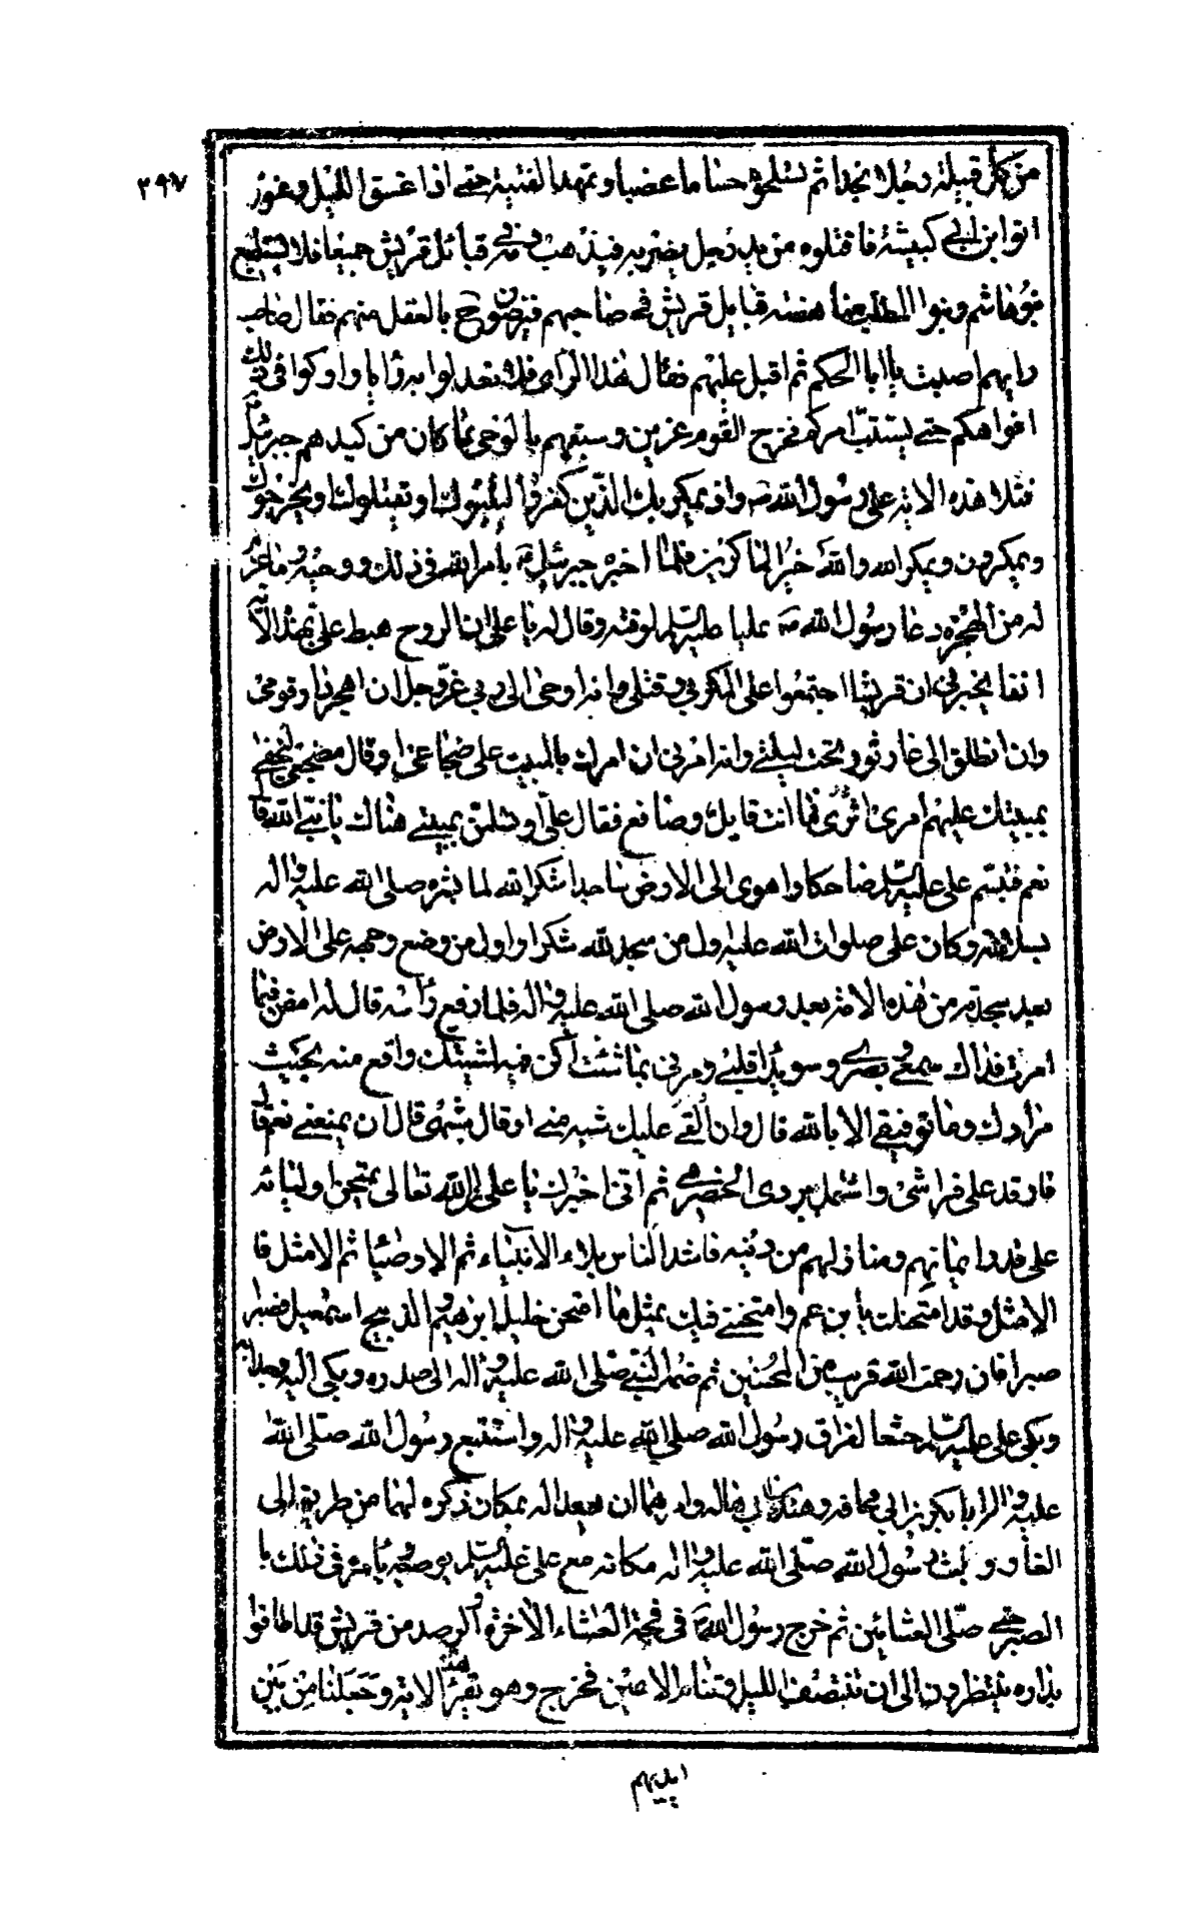 ٢٩٧
من كل قبيلة رجلا نجدا ثم تسلحوه حساما عضبا وتمهد الفتية حتى اذا غسق الليل وغور
اتوا ابن ابي كبيشة فاقتلوه من يد رجل يضربه فيذهب دمه في قبائل قريش جميعا فلا يستطيع
بنو هاشم وبنوا المطلب مناهضته قبايل قريش في صاحبهم فيرضون ح بالعقل منهم فقال صاحب
رايهم اصبت يا ابا الحكم ثم اقبل عليهم فقال هذا الراى فلا تعدلوا به رايا واوكوا في ذلك
افواهكم حتى يستتب امركم فخرج القوم عزين وسبقهم بالوحى بما كان من كيدهم جبرئيل
فتلا هذه الاية على رسول الله ص واذ يمكر بك الذين كفروا ليثبتوك او يقتلوك او يخرجوك
ويمكرون ويمكر الله والله خير الماكرين فلما اخبره جبرئيل ع بامر الله في ذلك ووحيه وما عزم
له من الهجرة دعا رسول الله ص عليا عليه السلم لوقته وقال له يا على ان الروح هبط على بهذه الاية
انفا يخبرني ان قريشا اجتمعوا على المكر بي وقتلى وانه اوحى الى ربي عز وجل ان اهجر دار قومى
وان انطلق الى غار ثور تحت ليلتى وانه امرني ان امرك بالمبيت على ضجاعى او قال مضجعى ليخفى
بمبيتك عليهم امرى اثرى فما انت قايل وصانع فقال على او تسلمن بمبيتى هناك يا نبي الله قال
نعم فتبسم على عليه السلم ضاحكا واهوى الى الارض ساجدا شكرا لله لما بشره صلى الله عليه واله
بسلامته وكان على صلوات الله عليه اول من سجد لله شكرا واول من وضع وجهه على الارض
بعد سجدته من هذه الامة بعد رسول الله صلى الله عليه واله فلما رفع رأسه قال له امض فيما
امرت فداك سمعى وبصرى وسويداء قلبى ومرني بما شئت اكن فيه لمشيتك واقع منه بحيث
مرادك وما توفيقى الا بالله قال وان القى عليك شبه منى او قال شبهى قال ان يمنعنى نعم قال
فارقد على فراشى واشتمل ببردى الحضرمى ثم اني اخبرك يا على ان الله تعالى يمتحن اوليائه
على قدر ايمانهم ومنازلهم من دينه فاشد الناس بلاء الانبياء ثم الاوصياء ثم الامثل فا
الامثل وقد امتحنك يا بن عم وامتحننى فيك بمثل ما امتحن خليله ابرهيم والذبيح اسمعيل فصبرا
صبرا فان رحمت الله قريب من المحسنين ثم ضمه النبي صلى الله عليه واله الى صدره وبكى اليه وجدا به
وبكى على عليه السلم جشعا لفراق رسول الله صلى الله عليه واله واستتبع رسول الله صلى الله
عليه واله ابا بكر بن ابي قحافة وهند بن ابي هالة وامرهما ان يقعدا له بمكان ذكره لهما من طريقه الى
الغار ولبث رسول الله صلى الله عليه واله مكانه مع على عليه السلم يوصيه ويامره في ذلك با
الصبر حتى صلى العشائين ثم خرج رسول الله ص في فحمة العشاء الاخرة والرصد من قريش قد اطافوا
بداره ينتظرون الى ان تنتصف الليل وتنام الاعين فخرج وهو يقرأ هذه الاية وجعلنا من بين
ايديهم